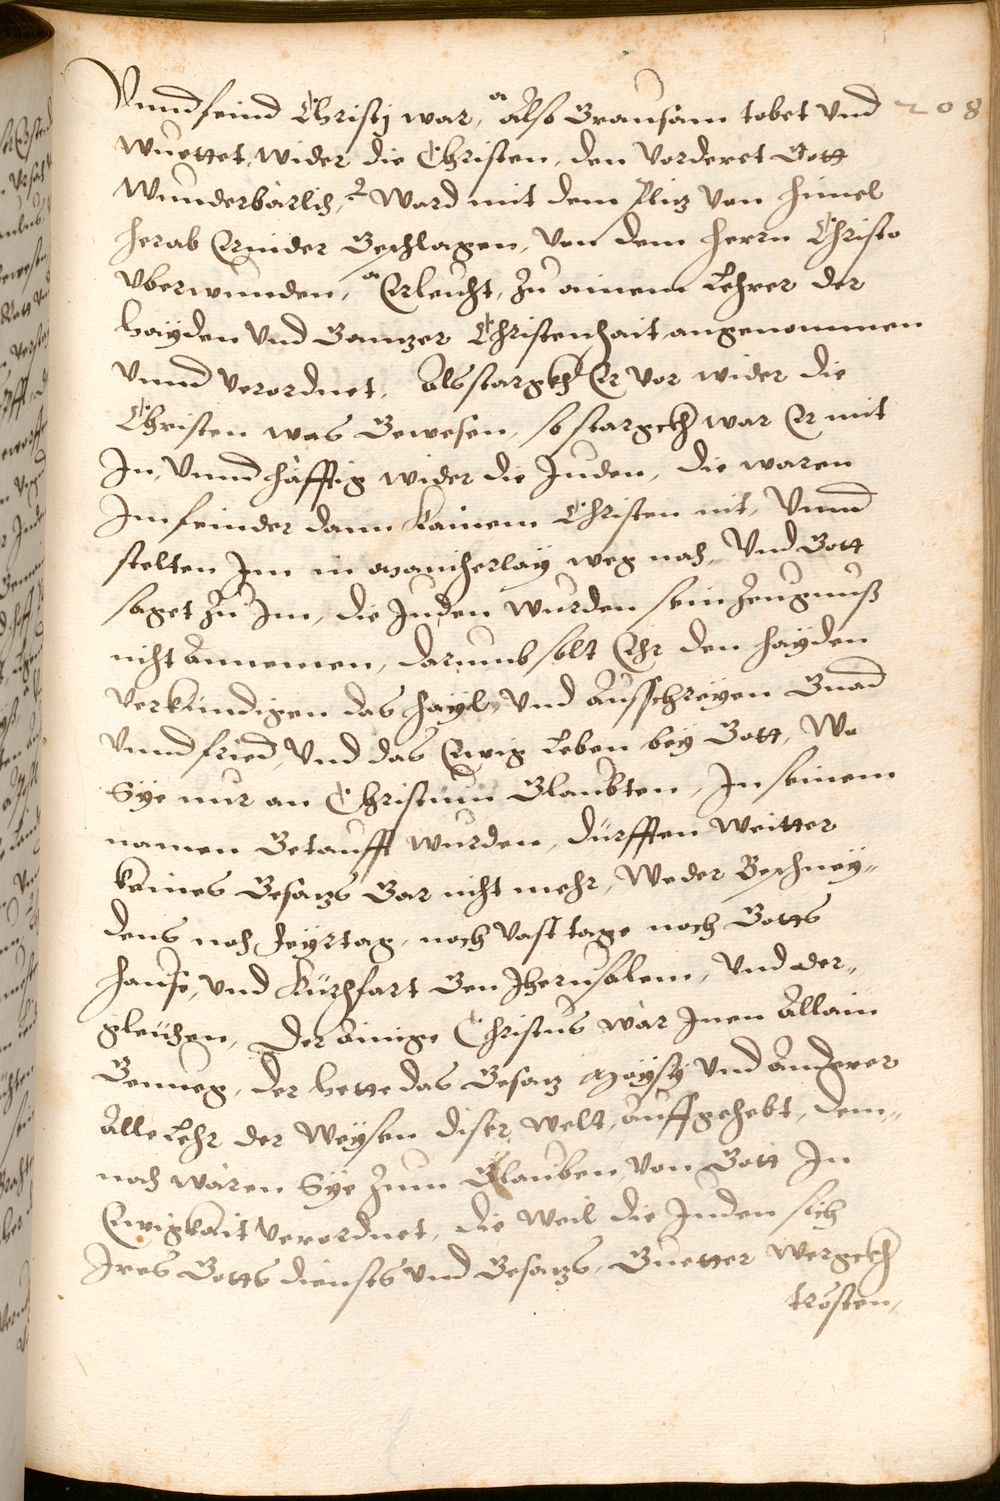 Vnnd feind Christj war, Also Grausam tobet Vnd 208
wuettet, wider die Christen, den Vorderet Gott
Wunderbarlich, Ward mit dem Plitz Von himel
herab Ernider Geschlagen, Von dem herrn Christo
Vberwunden, Erleucht, Zu ainem Lehrer der
hayden Vnd Gantzer Christenhait angenommen
Vnnd Verordnet, Als starckh Er Vor wider die
Christen was Gewesen, so starckh war Er mit
In, Vnnd häfftig wider die Juden, die waren
Im feinder dann kainem Christen nit, Vnnd
stelten Im in mancherlay weg nach, Vnd Gott
saget Zu Im, die Juden Wurden sein Zeugnuß
nicht Annemen, darumb solt Ehr den hayden
Verkündigen das hayl, Vnd Ausschreyen Gnad
Vnnd fried, Vnd das Ewig Leben bey Gott, Wo
Sye nur an Christum Glaubten, In seinem
namen Getaufft wurden, dürfften Weitter
keines Gesatzs Gar nicht mehr, Weder Beschney„
dens noch feyrtag, noch Vast tage noch Gotts
hause, Vnd Kürchfart Gen Jherusalem, Vnd der„
gleichen, der Ainige Christus war Inen Allain
Genueg, der hette das Gesatz Moysy Vnd Anderer
Alle Lehr der Weysen diser Welt, auffgehebt, dem„
nach waren Sye Zum Glauben, Von Gott In
Ewigkait Verordnet, die Weil die Juden sich
Ires Gotts diensts Vnd Gesatzs, Guetter Werckh
trösten,